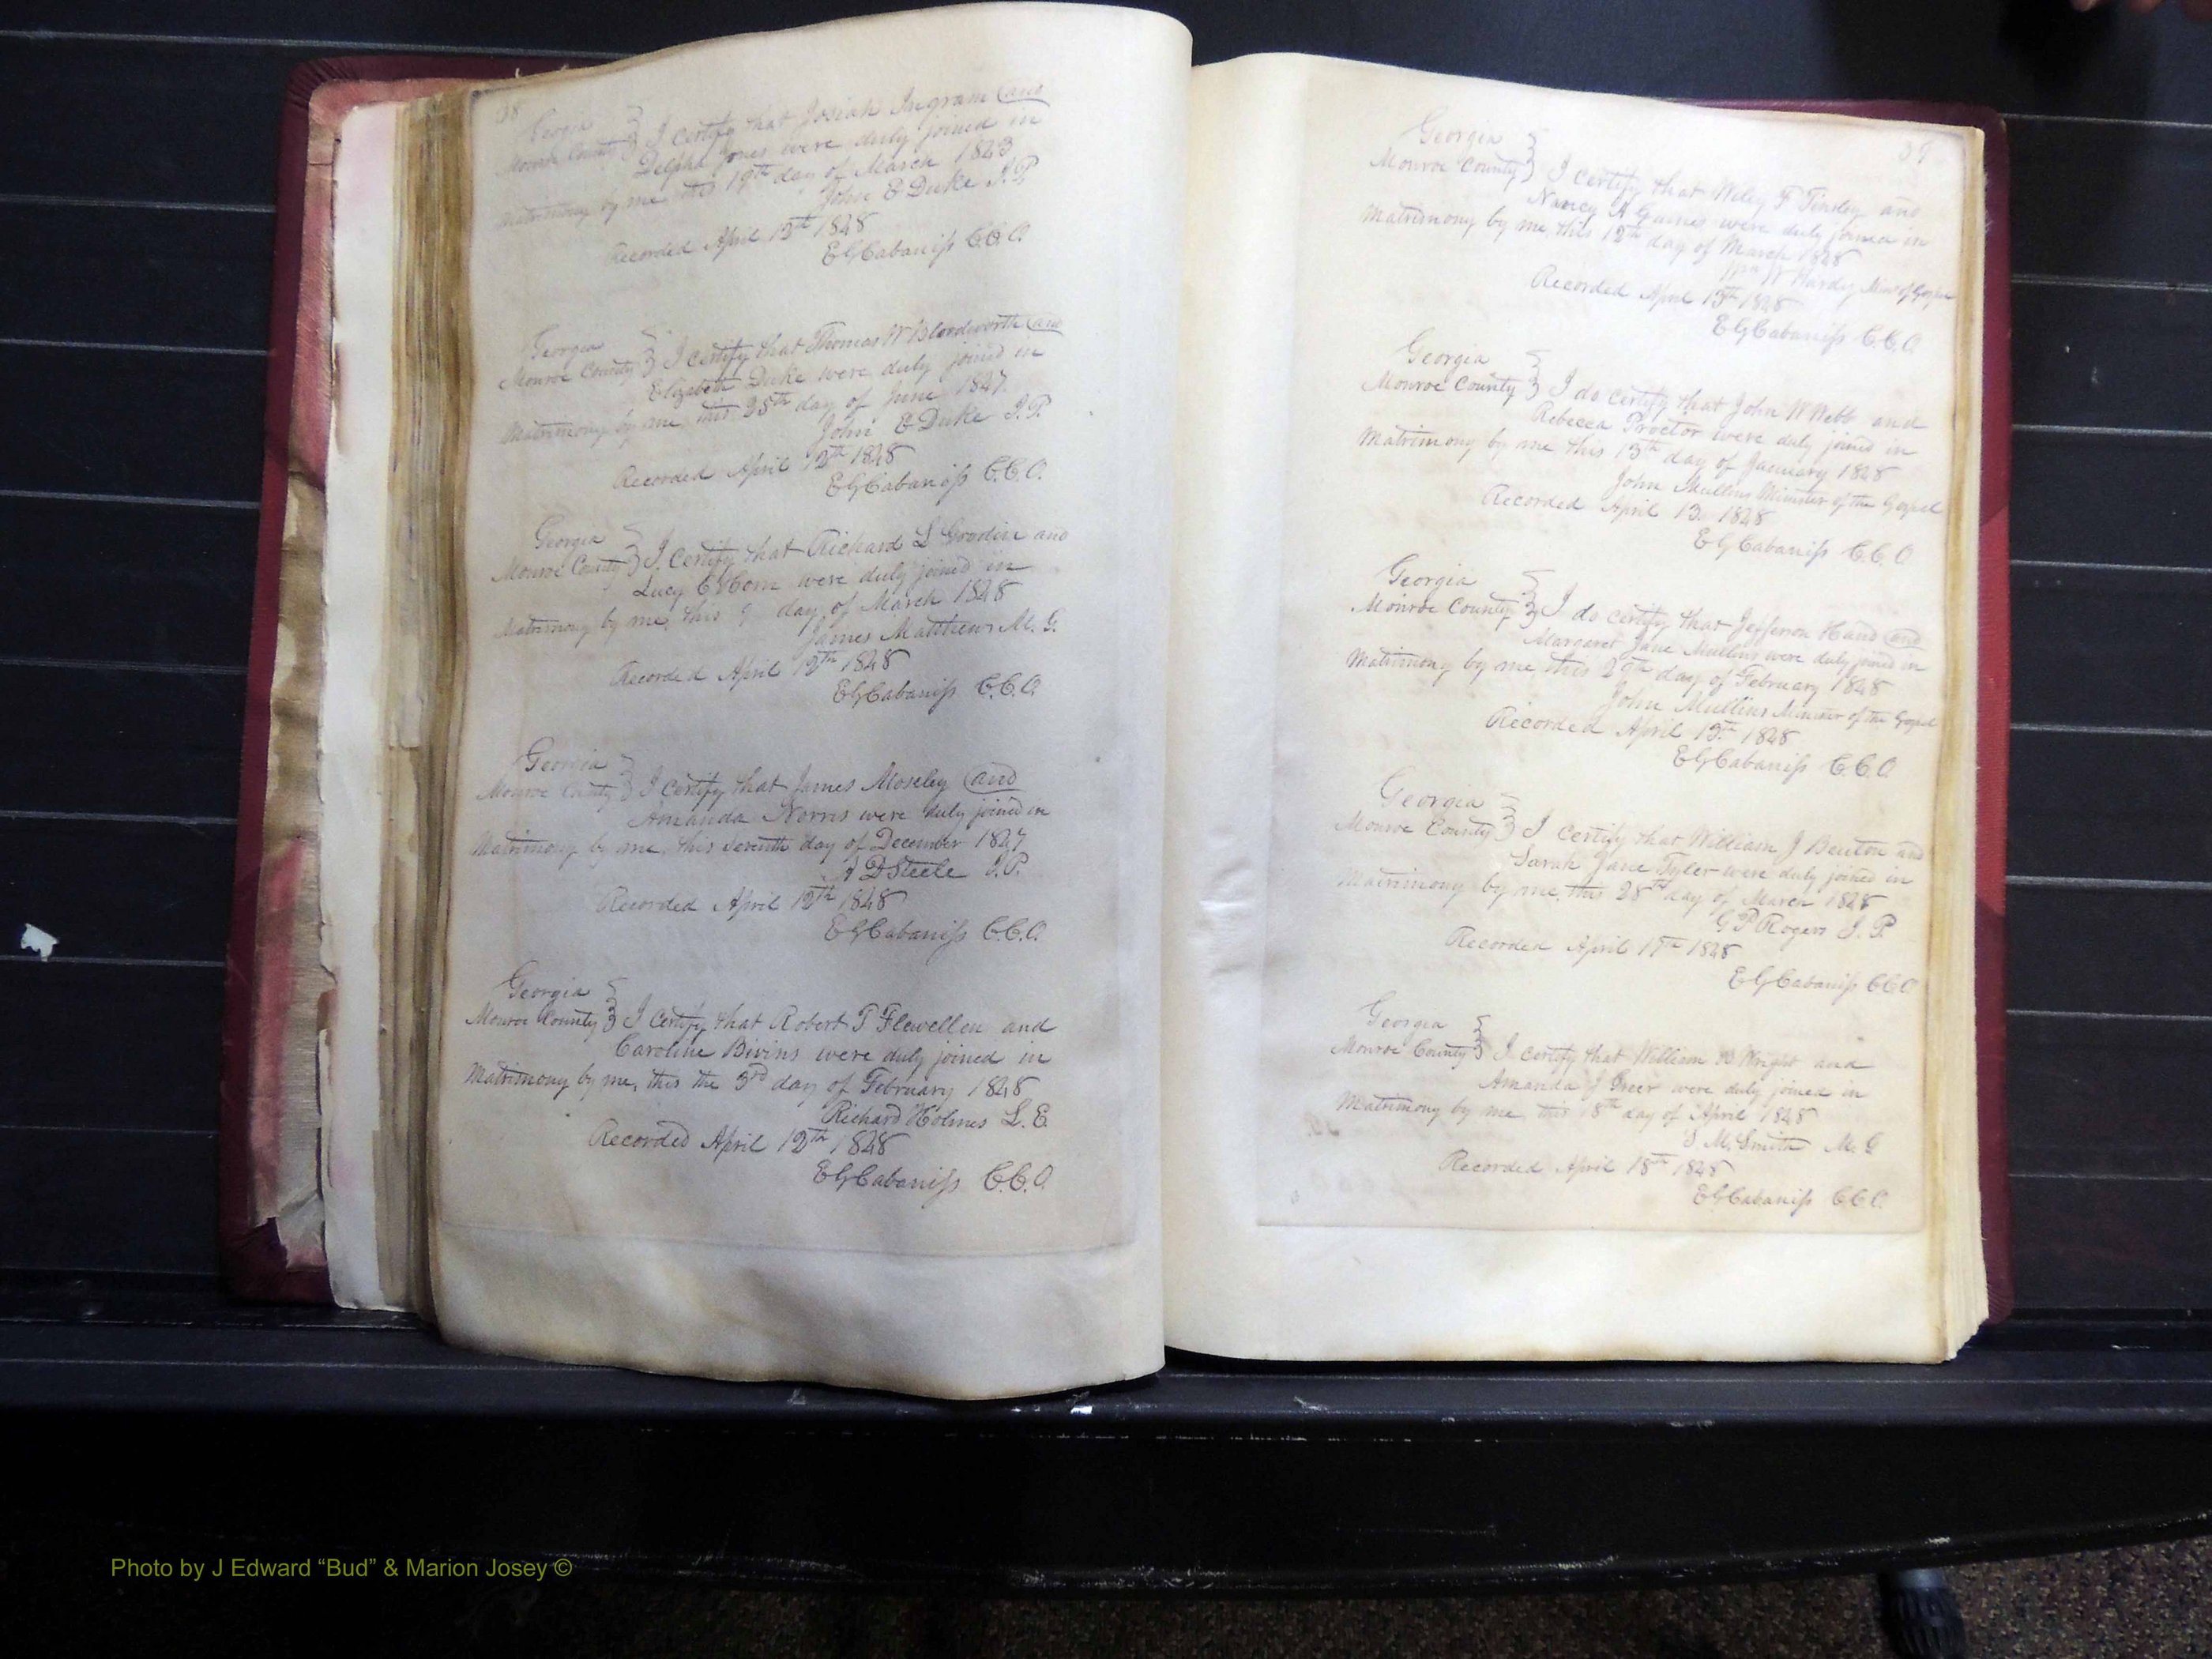 38
Georgia
Monroe County } I certify that Josiah Ingram and
Delpha Jones were duly joined in
Matrimony by me this 19th day of March 1843
John E Duke J.P.
Recorded April 12th 1848
E G Cabaniss C.C.O.
Georgia
Monroe County } I certify that Thomas W Bloodworth and
Elizabeth Duke were duly joined in
Matrimony by me, this 25th day of June 1847.
John E Duke J.P.
Recorded April 12th 1848
E G Cabaniss C.C.O.
Georgia
Monroe County } I. certify that Richard L Grodin and
Lucy C were duly joined in
Matrimony by me, this 9 day of March 1848
James Matthews M. G.
Recorded April 12th 1848
E G Cabaniss C.C.O.
Georgia
Monroe County } I certify that James Moseley and
Amanda Norris were duly joined in
Matrimony by me, this seventh day of December 1847
A D Steele J.P.
Recorded April 12th 1848
E G Cabaniss C.C.O.
Georgia
Monroe County } I certify that Robert T Flewellen and
Caroline Bivins were duly joined in
Matrimony by me, this the 3rd day of February 1848
Richard Holmes L. E.
Recorded April 12th 1848
E G Cabaniss C.C.O.
39
Georgia
Monroe County } I certify that Wiley F Tinsley and
Nancy A Gaines were duly joined in
Matrimony by me, this 12th day of March 1848
Wm W Hardy Min of Gospel
Recorded April 13th 1848
E G Cabaniss C.C.O.
Georgia
Monroe County } I do certify that John W Webb and
Rebecca Proctor were duly joined in
Matrimony by me this 13th day of January 1848
John Mullins Minister of the Gospel
Recorded April 13 1848
E G Cabaniss C.C.O
Georgia
Monroe County } I do certify that Jefferson Hand and
Margaret Jane Mullins were duly joined in
Matrimony by me, this 29th day of February 1848
John Mullins Minister of the Gospel
Recorded April 13th 1848
E G Cabaniss C.C.O.
Georgia
Monroe County } I certify that William J Benton and
Sarah Jane Tyler were duly joined in
Matrimony by me, this 28th day of March 1848
G P Rogers J. P.
Recorded April 17th 1848
E G Cabaniss CCO
Georgia
Monroe County } I certify that William Wright and
Amanda J Greer were duly joined in
Matrimony by me, this 18th day of April 1848
S. M. Smith M. G
Recorded April 18th 1848
E G Cabaniss CCO.
Photo by J Edward “Bud” & Marion Josey ©